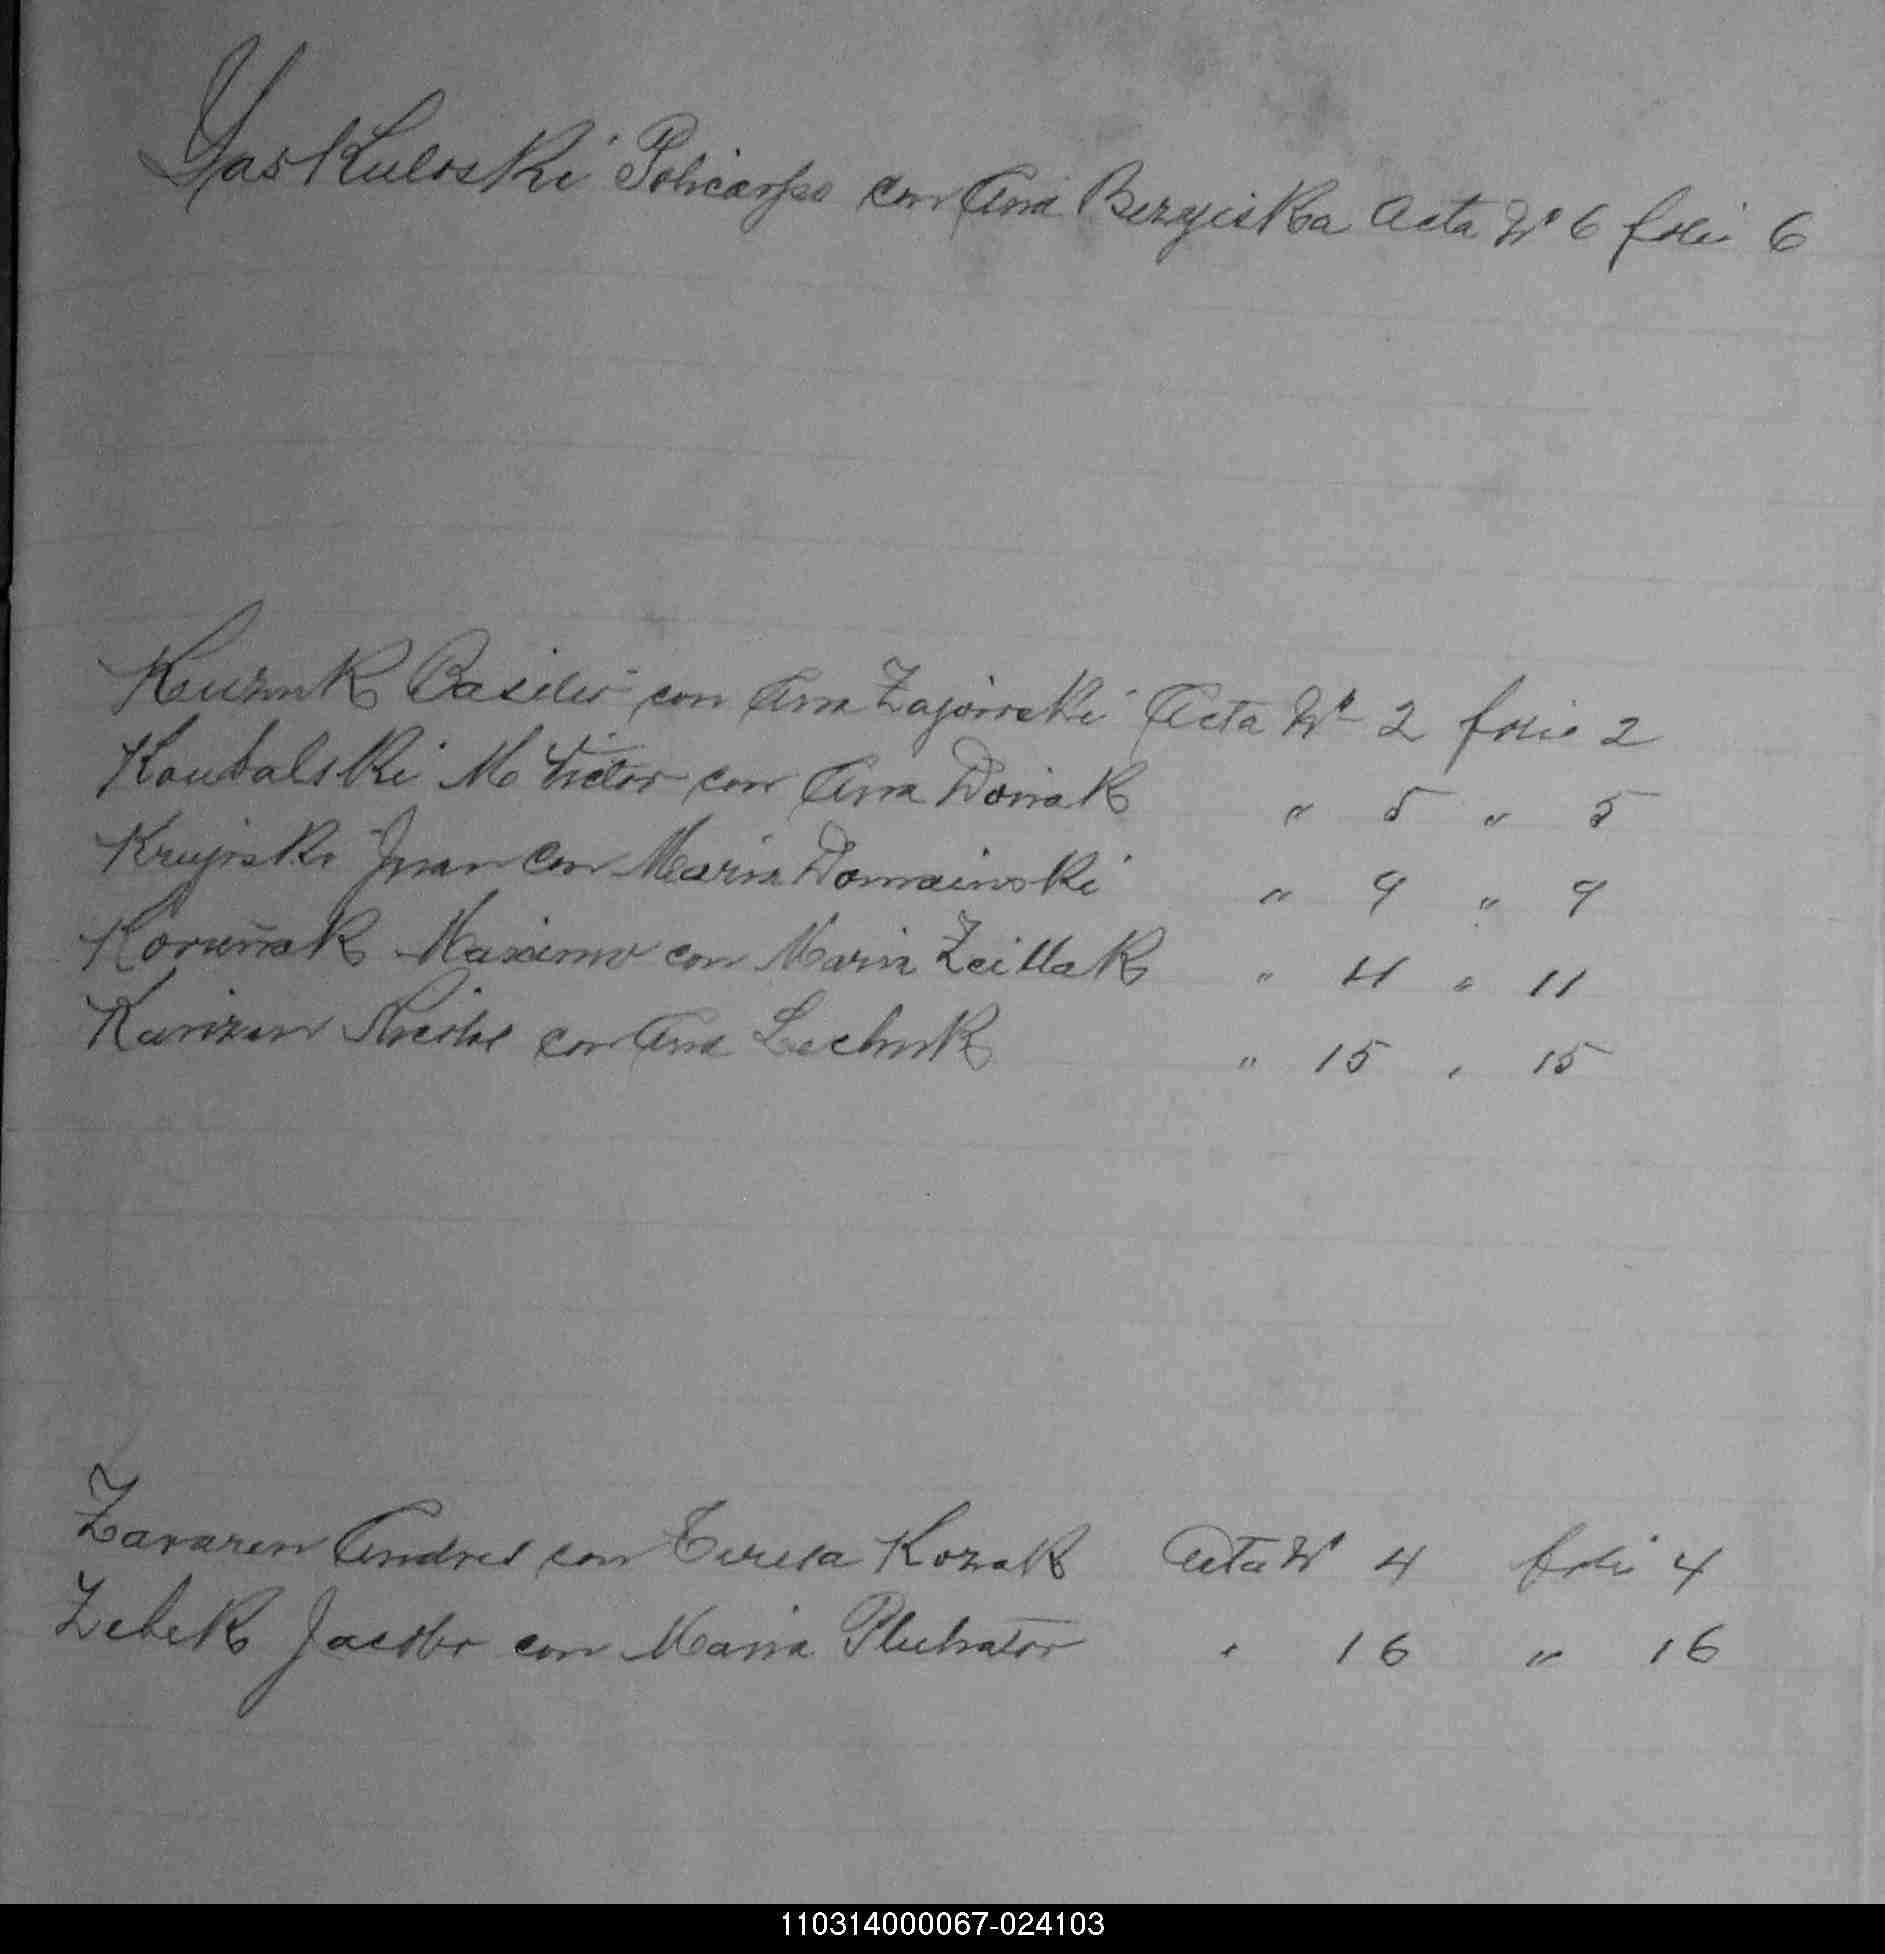 Yaskuloski Policarpo con Ana Bezyiska Acta Nº 6 folio 6
Kuzmk Basilio con Ana Zajorski Acta Nº 2 folio 2
Koubalski M Victor con Ana Doniak " 5 " 5
Krujoski Juan con Maria Domainski " 9 " 9
Koruñak Maximo con Maria Zcillak " 11 " 11
con Ana Lechuk " 15 " 15
Zavaren Andres con Teresa Kozak Acta Nº 4 folio 4
Zebek Jacobo con Maria Pluhator " 16 " 16
110314000067-024103